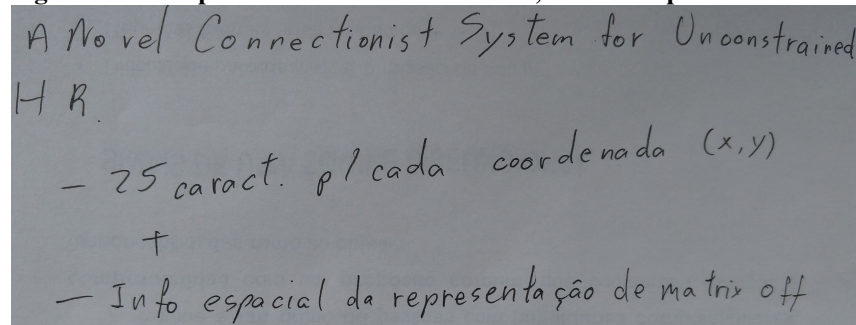 A Novel Connectionist System for Unconstrained
HR.
- 25 caract. p/ cada coordenada (x,y)
+
- Info espacial da representação de matrix off